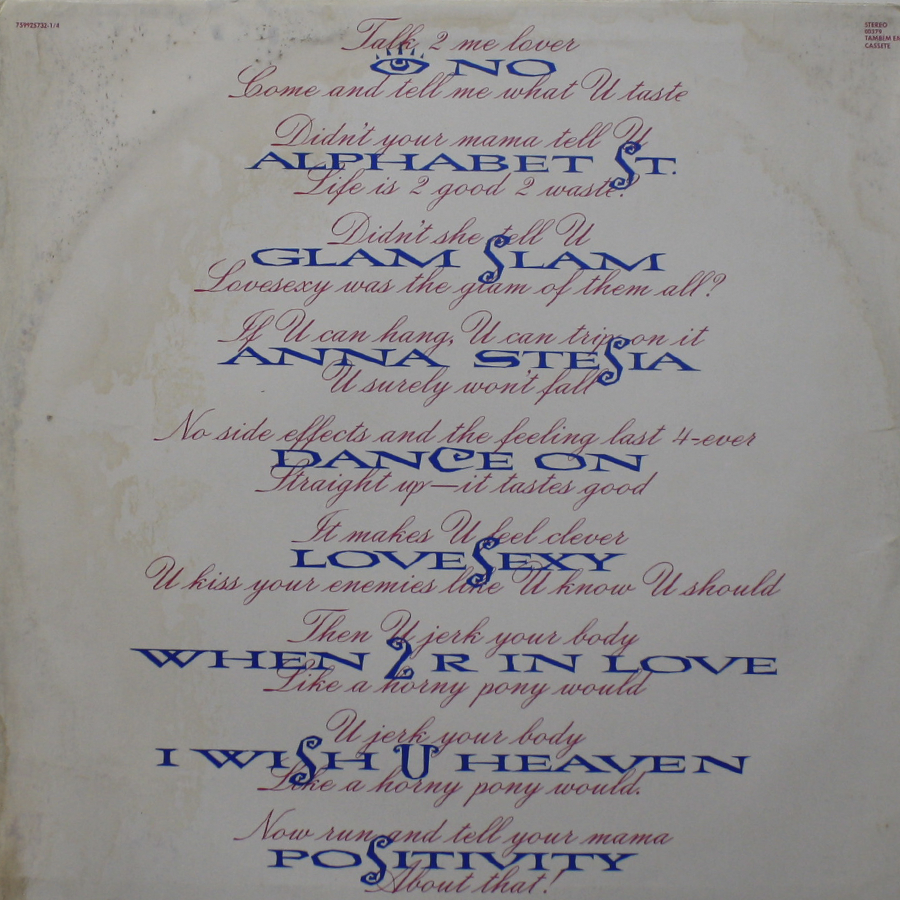 759925732-1/4
STEREO
TAMBÉM EM
CASSETE
Talk 2 me lover
NO
Come and tell me what U taste
Didn't your mama tell U
ALPHABET ST.
Life is 2 good 2 waste?
Didn't she tell U
GLAM SLAM
Lovesexy was the glam of them all?
If U can hang, U can trip on it
ANNA STESIA
U surely won't fall
No side effects and the feeling last 4-ever
DANCE ON
Straight up—it tastes good
It makes U feel clever
LOVESEXY
U kiss your enemies like U know U should
Then U jerk your body
WHEN 2 R IN LOVE
Like a horny pony would
U jerk your body
I WISH U HEAVEN
Like a horny pony would.
Now run and tell your mama
POSITIVITY
About that!